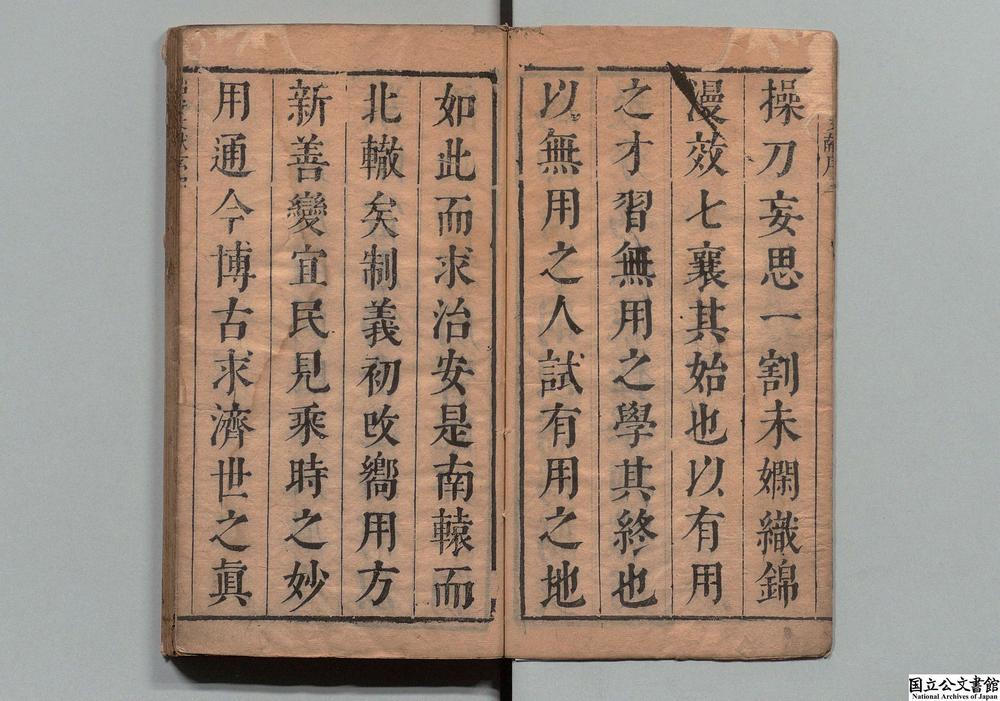 操刀妄思一割未嫻織錦
漫效七襄其始也以有用
之才習無用之學其終也
以無用之人試有用之地
如此而求治安是南轅而
北轍矣制義初改嚮用方
新善變宜民見乘時之妙
用通今博古求濟世之眞
国立公文書館
National Archives of Japan